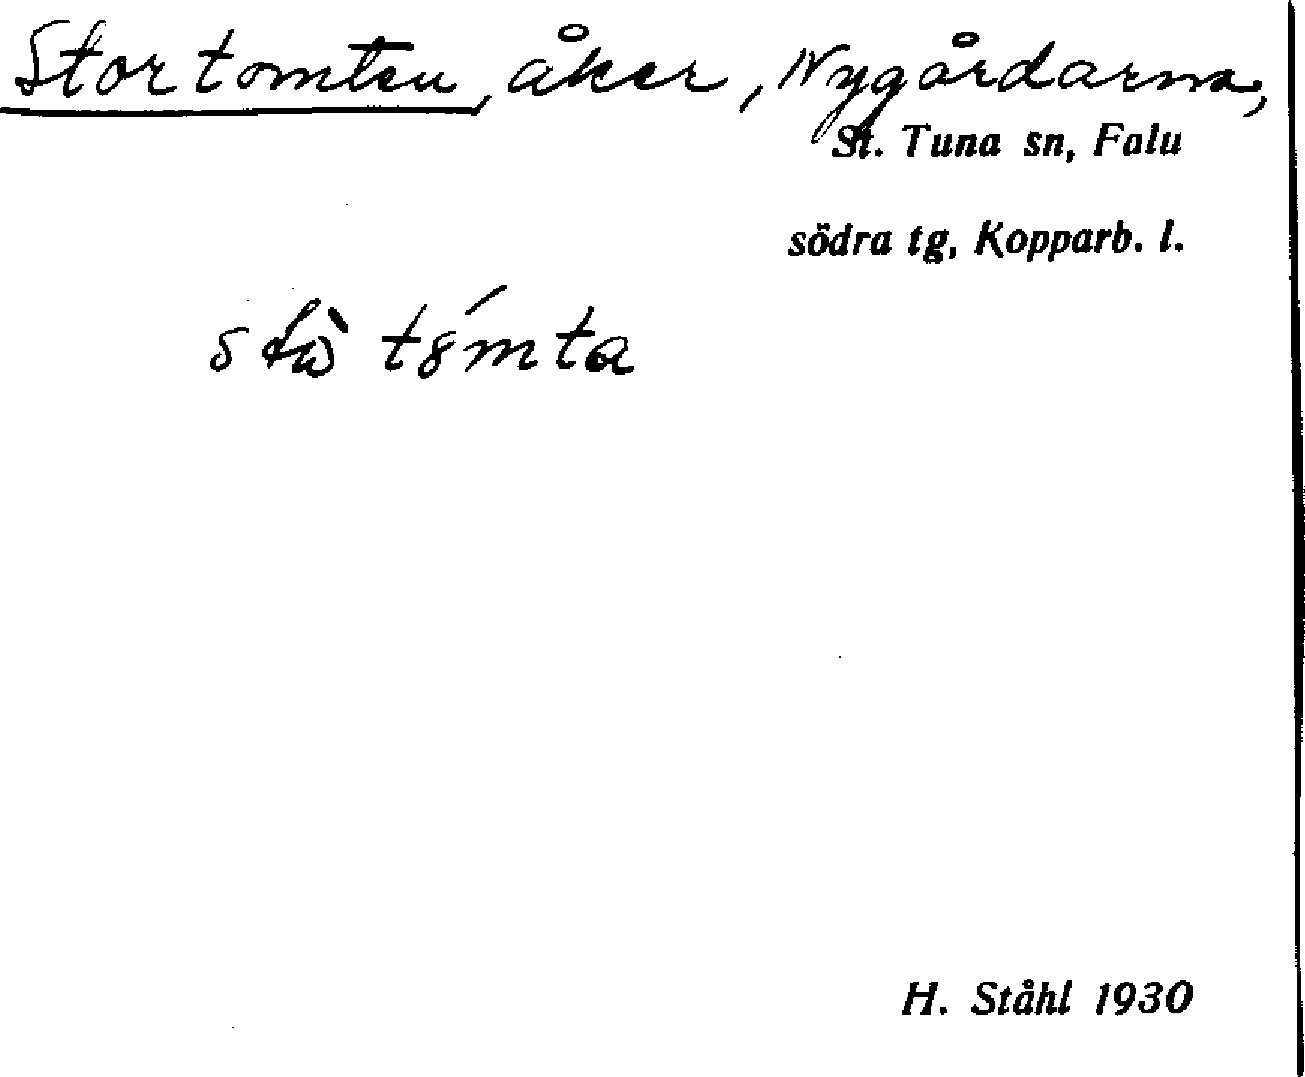 Stortomten, åker, Nygårdarna,
St. Tuna sn, Falu
södra tg, Kopparb. l.
H. Ståhl 1930